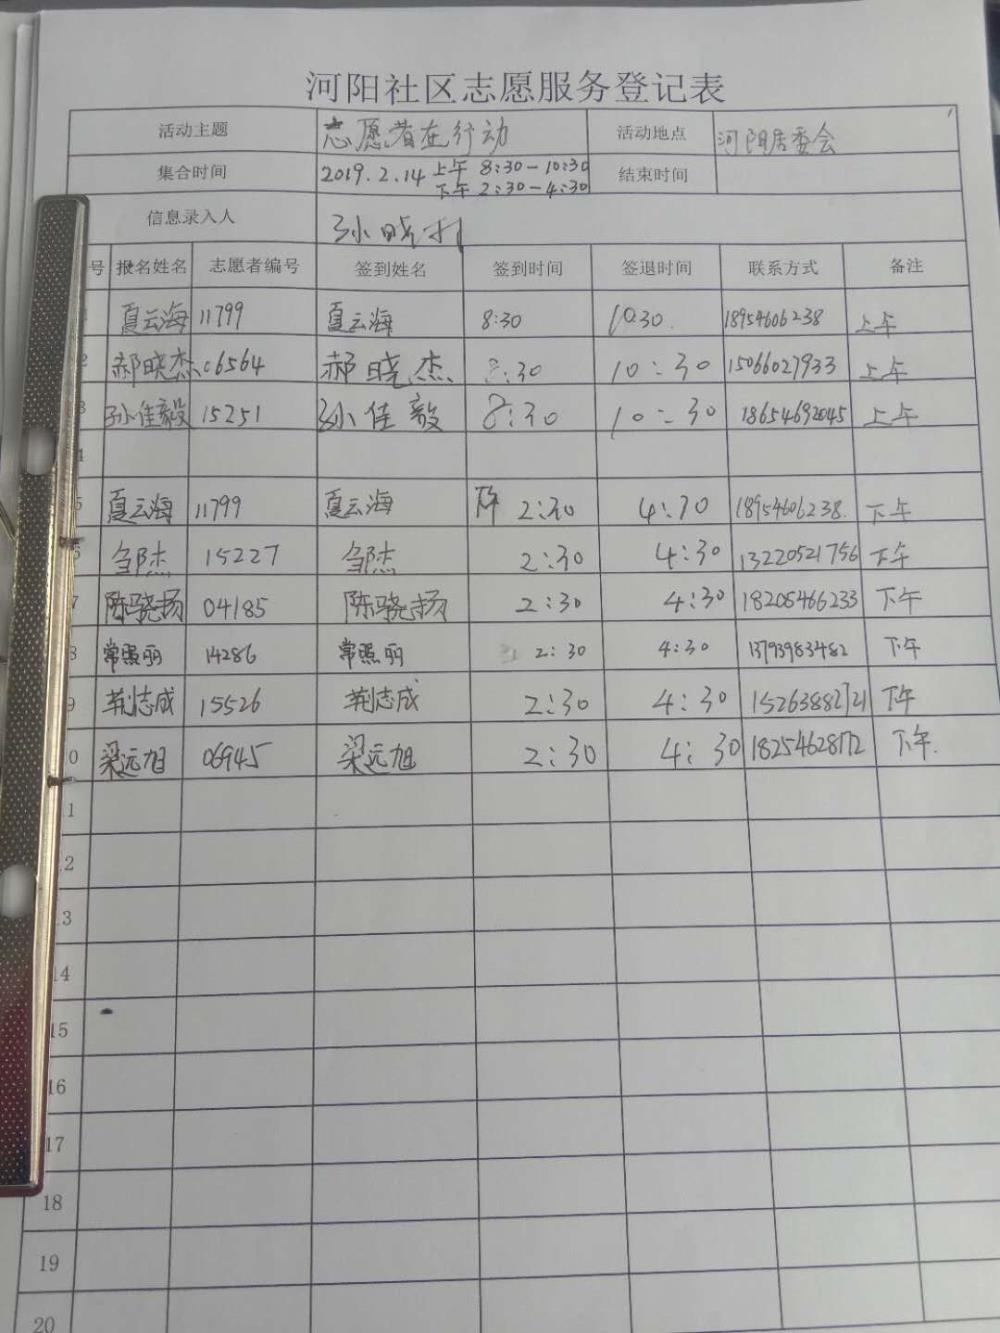 河阳社区志愿服务登记表
活动主题 志愿者在行动 活动地点 河阳居委会
集合时间 2019.2.14 上午 8:30-10:30 下午 2:30-4:30 结束时间
信息录入人
号 报名姓名 志愿者编号 签到姓名 签到时间 签退时间 联系方式 备注
夏云海 11799 夏云海 8:30 10:30 18954606238 上午
2 郝晓杰 06564 郝晓杰 8:30 10:30 15066027933 上午
3 孙佳毅 15251 孙佳毅 8:30 10:30 18654692045 上午
4
5 夏云海 11799 夏云海 下午 2:30 4:30 18954606238 下午
6 邹杰 15227 邹杰 2:30 4:30 13220521756 下午
7 陈骁扬 04185 陈骁扬 2:30 4:30 18205466233 下午
8 常照丽 14286 常照丽 2:30 4:30 13793983482 下午
9 荆志成 15526 荆志成 2:30 4:30 15263882721 下午
0 梁远旭 06945 梁远旭 2:30 4:30 18254628172 下午
11
12
13
14
15
16
17
18
19
20